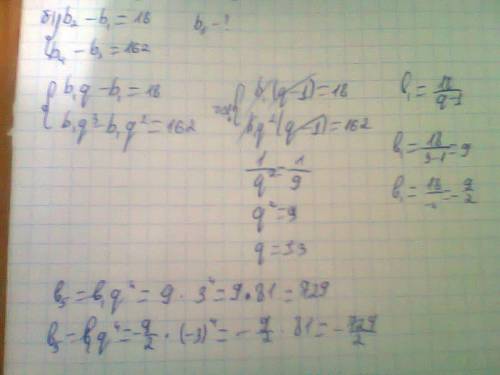 б) { b₂ − b₁ = 18        b₅ − ?
b₄ − b₃ = 162
{ b₁q − b₁ = 18
b₁q³ − b₁q² = 162
{ b₁(q−1) = 18
b₁q²(q−1) = 162
1/q² = 1/9
q² = 9
q = ±3
b₁ = 18/(q−1)
b₁ = 18/(3−1) = 9
b₁ = 18/−4 = −9/2
b₅ = b₁q⁴ = 9 · 3⁴ = 9 · 81 = 729
b₅ = b₁q⁴ = −9/2 · (−3)⁴ = −9/2 · 81 = −729/2